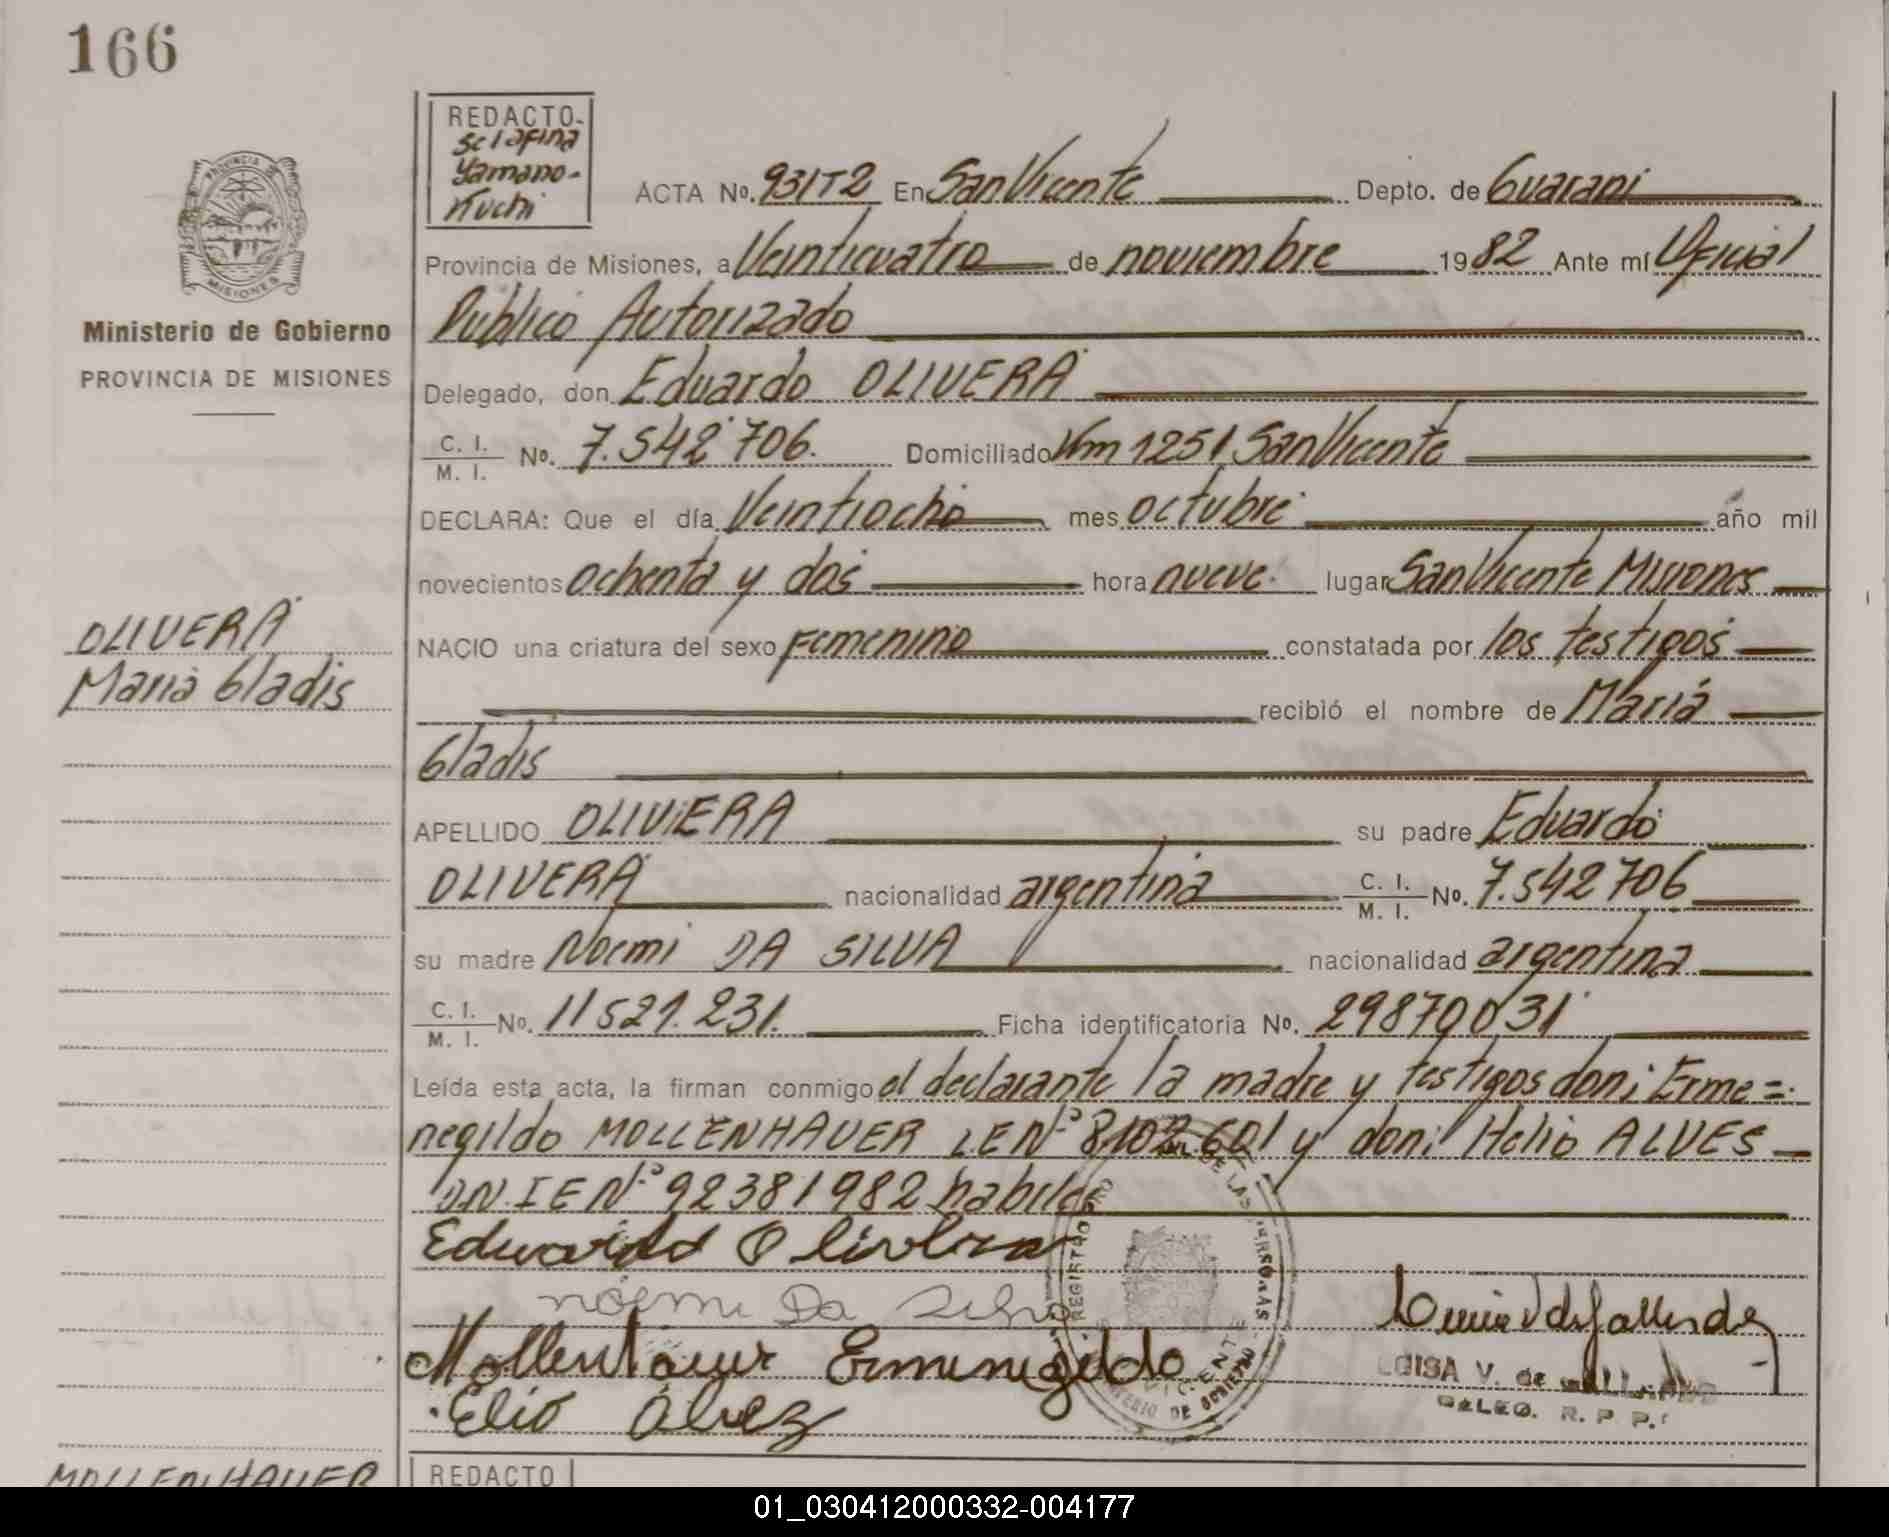 166
REDACTO-
Serafina
Yamano-
Kuchi
ACTA No. 931T2 En San Vicente Depto. de Guarani
Provincia de Misiones, a Veinticuatro de noviembre 1982 Ante mí Oficial
Público Autorizado
Delegado, don Eduardo OLIVERA
C. I.
M. I. No. 7.542.706. Domiciliado Km 1251 San Vicente
DECLARA: Que el día Veintiocho mes octubre año mil
novecientos ochenta y dos hora nueve. lugar San Vicente Misiones
NACIO una criatura del sexo Femenino constatada por los testigos
recibió el nombre de María
Gladis
APELLIDO OLIVERA su padre Eduardo
OLIVERA nacionalidad argentina C. I.
M. I. No. 7.542706
su madre Noemi DA SILVA nacionalidad argentina
C. I.
M. I. No. 11521.231. Ficha identificatoria No. 29870031
Leída esta acta, la firman conmigo el declarante la madre y testigos don: Erme=
negildo MOLLENHAUER LE Nº 8102601 y don: Helio ALVES
DNIE Nº 92381982 habiles
Eduardo Olivera
noemi Da Silva
Mollenhauer Ermenegildo
Elio Alvez
LUISA V. de
DELEG. R. P. P.
PROVINCIA DE
MISIONES
Ministerio de Gobierno
PROVINCIA DE MISIONES
OLIVERA
María Gladis
MOLLENHAUER
REDACTO
01_030412000332-004177